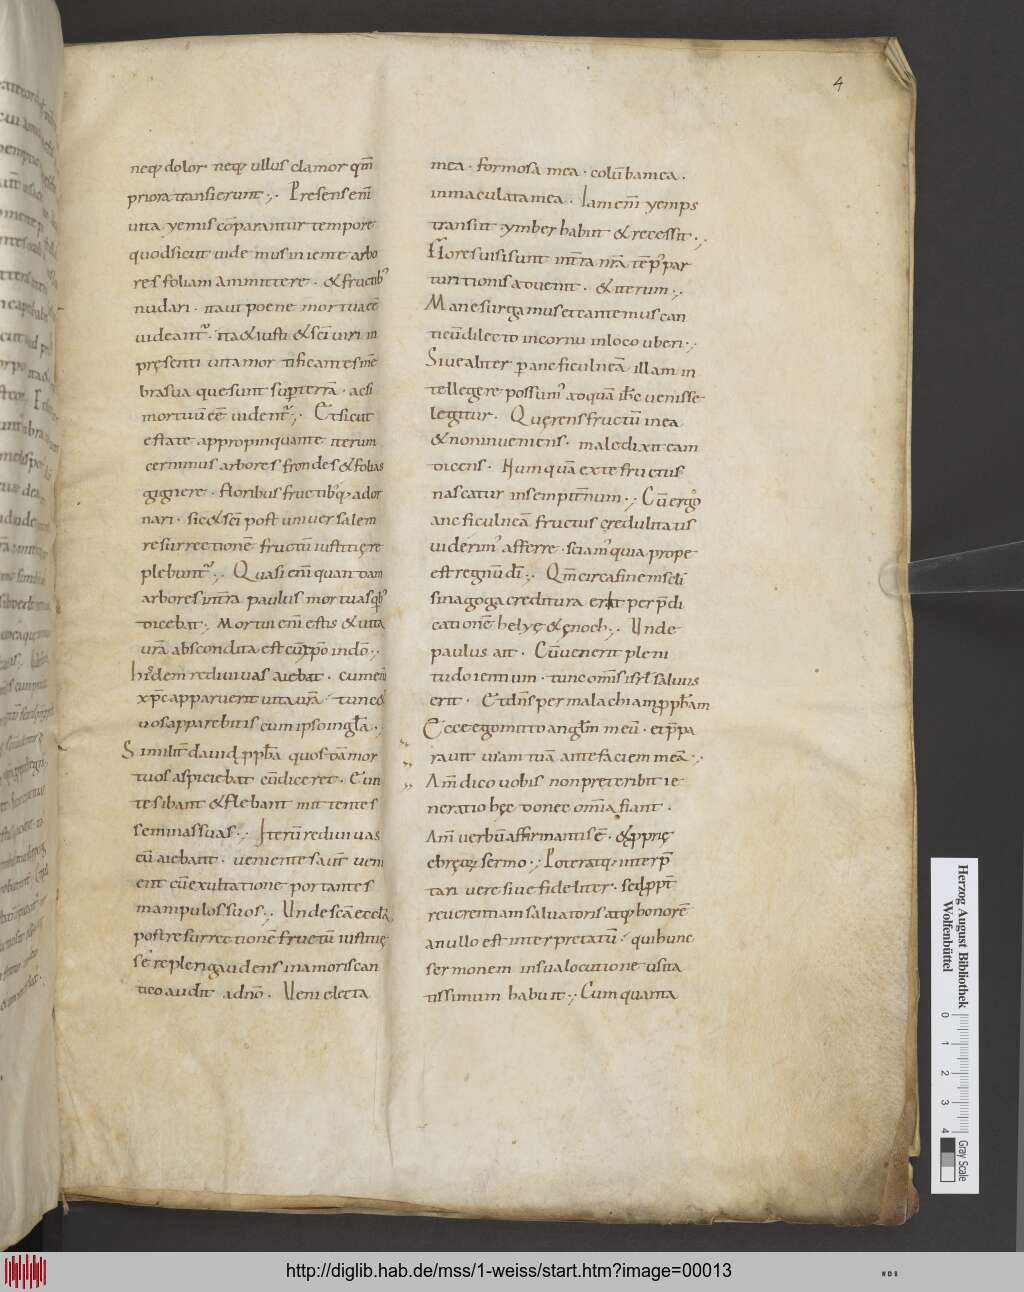 4
neq; dolor· neq; ullus clamor qm̄
priora transierunt·,· Presens eni̅
uita yemis cōparantur tempore
quod sicut uide mus in iente arbo
res foliam ammittere· & fructib;
nudari· ita ut poene mortua eē
uideant̄· ita & iusti & sc̄i uiri in
pręsenti uita mortificantes mē
bra sua que sunt sup terrā· ac si
mortuū eē uident̄·,· Et sicut
estate appropinquante iterum
cernimus arbores frondes & folias
gignere· floribus fructib;q; ador
nari· sic & sc̄i post uniuersalem
resurrectionē fructū iustitię re
plebunt̄·,· Quasi eni̅ quandam
arbores int̄ra paulus mortuas q;b;
dicebat·, Mortui eni̅ estis & uita
ur̄a abscondita est cū xp̄o in dō·,·
hisdem redivivas aiebat· cum eni̅
xp̄c apparuerit uita ur̄a· tunc &
uos apparebitis cum ipso in gl̄a·,·
Similit̄ dauid pph̄a quosdā mor
tuos aspiciebat cū diceret· Eun
tes ibant & flebant mittentes
semina sua·,· Iterū redivivas
cū aiebant· uenientes aut̄ ueni
ent cū exultatione portantes
manipulos suos·,· Unde sc̄a eccl̄a
post resurrectionē fructū iustitię
se repleri gaudens in amoris can
tico audit a dn̄o· Veni electa
mea· formosa mea· colūba mea·
inmaculata mea· Iam eni̅ yemps
transiit ymber habiit & recessit·,·
Flores uisi sunt int̄ra nr̄a tēp; par
turitionis advenit· & iterum·,·
Mane surgamus et cantemus can
ticū dilecto in cornu in loco uberi·,·
Siue aliter p ane ficulneā illam in
tellegere possum; ad quā ih̄c uenisse
legitur· Quęrens fructū in ea
& non inueniens· maledixit eam
dicens· Numquā ex te fructus
nascatur in sempit̄num·,· Cū ergo
anc ficulneā fructus credulitatis
uiderim; afferre· sciam; quia prope
est regnū dī·,· Qm̄ circa finem sc̄li
sinagoga creditura erit per p̄di
cationē helyę & ęnoch·,· Unde
paulus ait· Cū uenerit pleni
tudo ientium· tunc om̄s isr̄l saluus
erit· Et dn̄s per malachiam pph̄am
Ecce ego mitto angl̄m meū· et p̄pa
rauit uiam tuā ante faciem meā·,·
Am̄ dico uobis non preteribit ie
neratio hęc donec om̄ia fiant·
Am̄ uerbū affirmantis ē· & pprię
ebrę; sermo·,· Poterat q; interp̄
tari uere siue fideliter· sed ppt̄
reuerentiam saluatoris atq; honorē
a nullo est interpretatū· qui hunc
sermonem in sua locutione usita
tissimum habuit·,· Cum quanta
Herzog August Bibliothek
Wolfenbüttel
0 1 2 3 4
Gray Scale
http://diglib.hab.de/mss/1-weiss/start.htm?image=00013